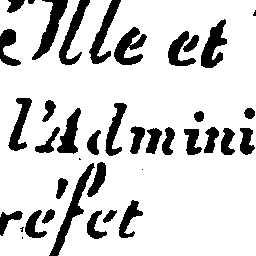 Ille et
l'Admini
réfet